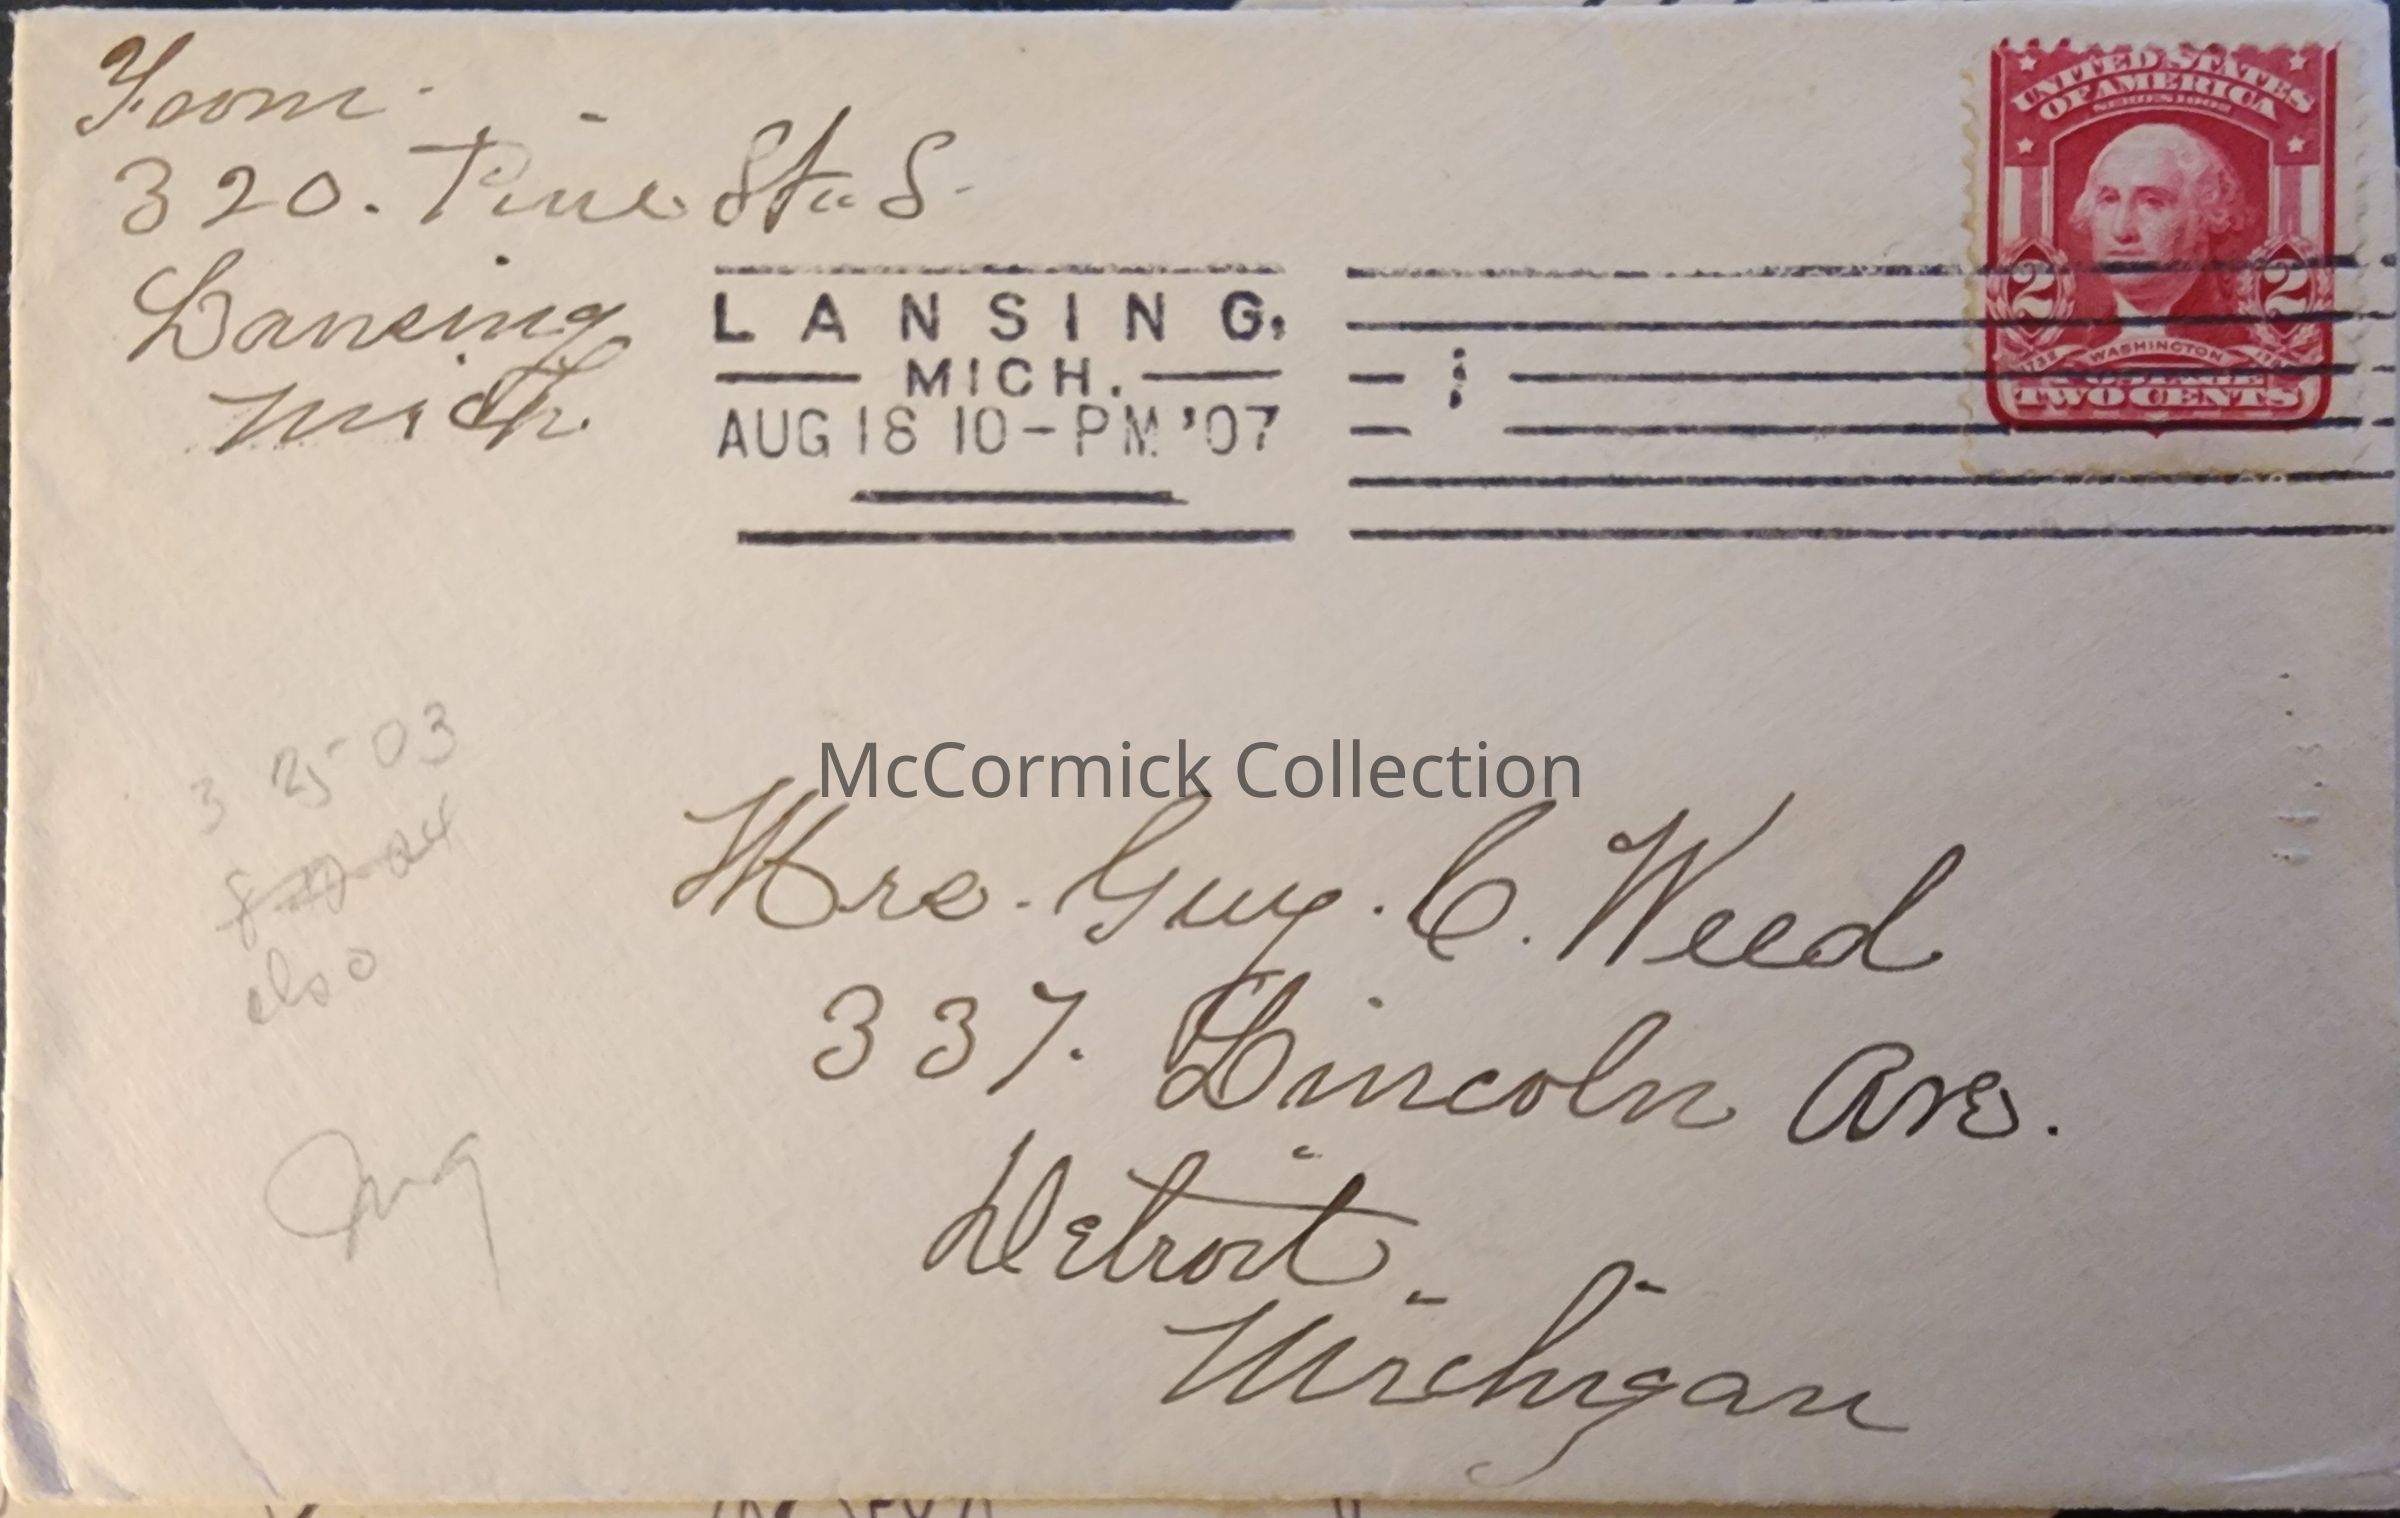 From
320. Pine St. S.
Lansing
Mich.
LANSING,
MICH.
AUG 18 10-PM '07
UNITED STATES
OF AMERICA
SERIES 1902
2 2
1732 WASHINGTON
TWO CENTS
3 25-03
also
McCormick Collection
Mrs. Guy. C. Weed
337. Lincoln Ave.
Detroit
Michigan